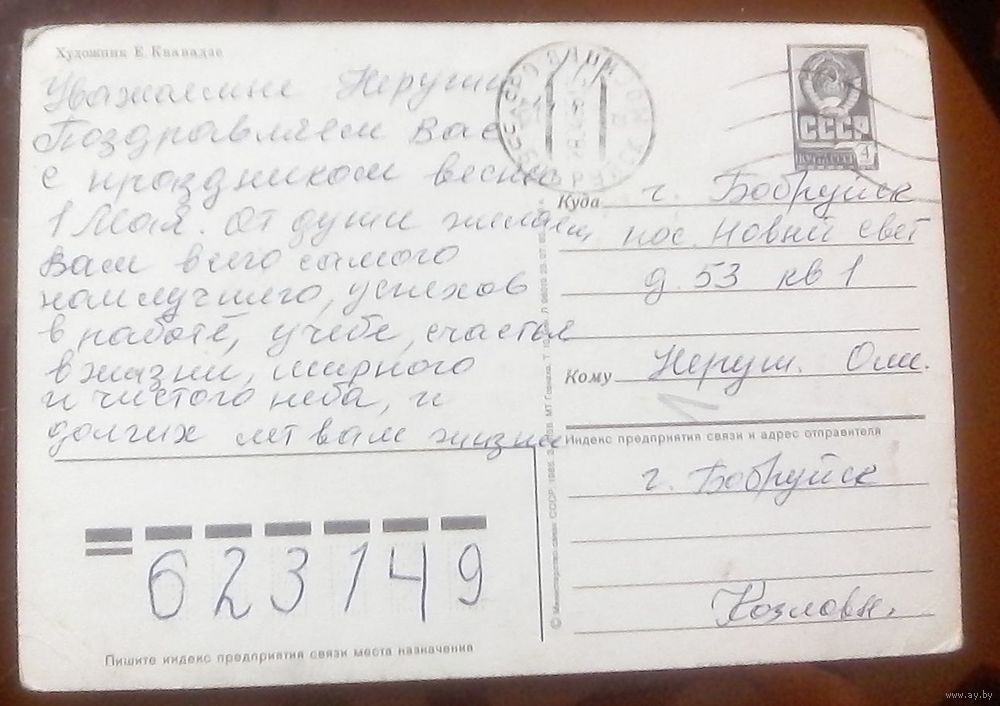 Художник Е. Квавадзе
Уважаемые Неруши
Поздравляем Вас
с праздником весны
1 Мая. От души желаем
Вам всего самого
наилучшего, успехов
в работе, учебе, счастья
в жизни, мирного
и чистого неба, и
долгих лет вам жизни
СССР
4
Куда г. Бобруйск
пос. Новый свет
д. 53 кв 1
Кому Неруш. Ол.
Индекс предприятия связи и адрес отправителя
г. Бобруйск
Козловы.
623149
Пишите индекс предприятия связи места назначения
© Министерство связи СССР. 1985.
www.ay.by